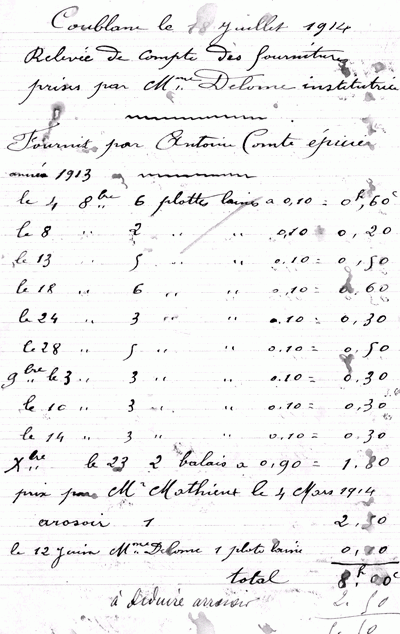 Coublanc le 18 Juillet 1914
Relevée de compte des fournitures
prises par Mme Delorme institutrice
Fournit par Antoine Comte épicier
année 1913
le 4 8bre 6 plottes laine a 0,10 = 0f,60c
le 8 " 2 " " 0,10 = 0,20
le 13 " 5 " " 0,10 = 0,50
le 18 " 6 " " 0,10 = 0,60
le 24 " 3 " " 0,10 = 0,30
le 28 " 5 " " 0,10 = 0,50
9bre le 3 " 3 " " 0,10 = 0,30
le 10 " 3 " " 0,10 = 0,30
le 14 " 3 " " 0,10 = 0,30
Xbre le 23 2 balais a 0,90 = 1,80
prix par Mr Mathieu le 4 Mars 1914
arosoir 1 2,50
le 12 Juin Mme Delorme 1 plote laine 0,10
total 8f,00c
à déduire arrosoir 2.50
5.50